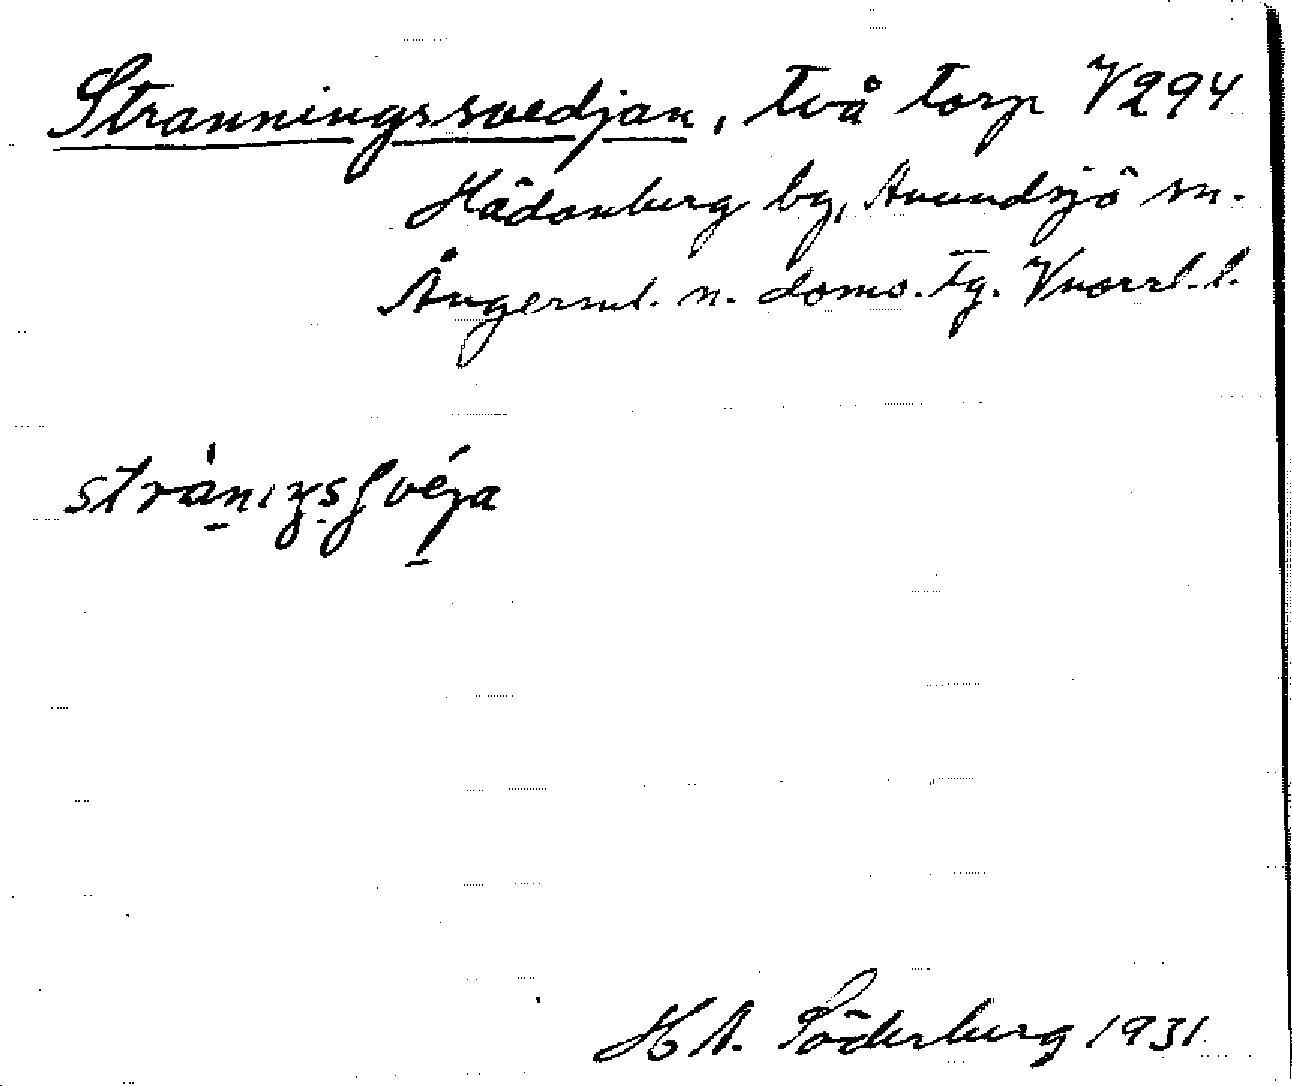 Stranningssvedjan, två torp V294
Hädanberg by, Anundsjö sn.
Ångerml. n. doms. Tg. Vnorrl. l.
H A. Söderberg 1931